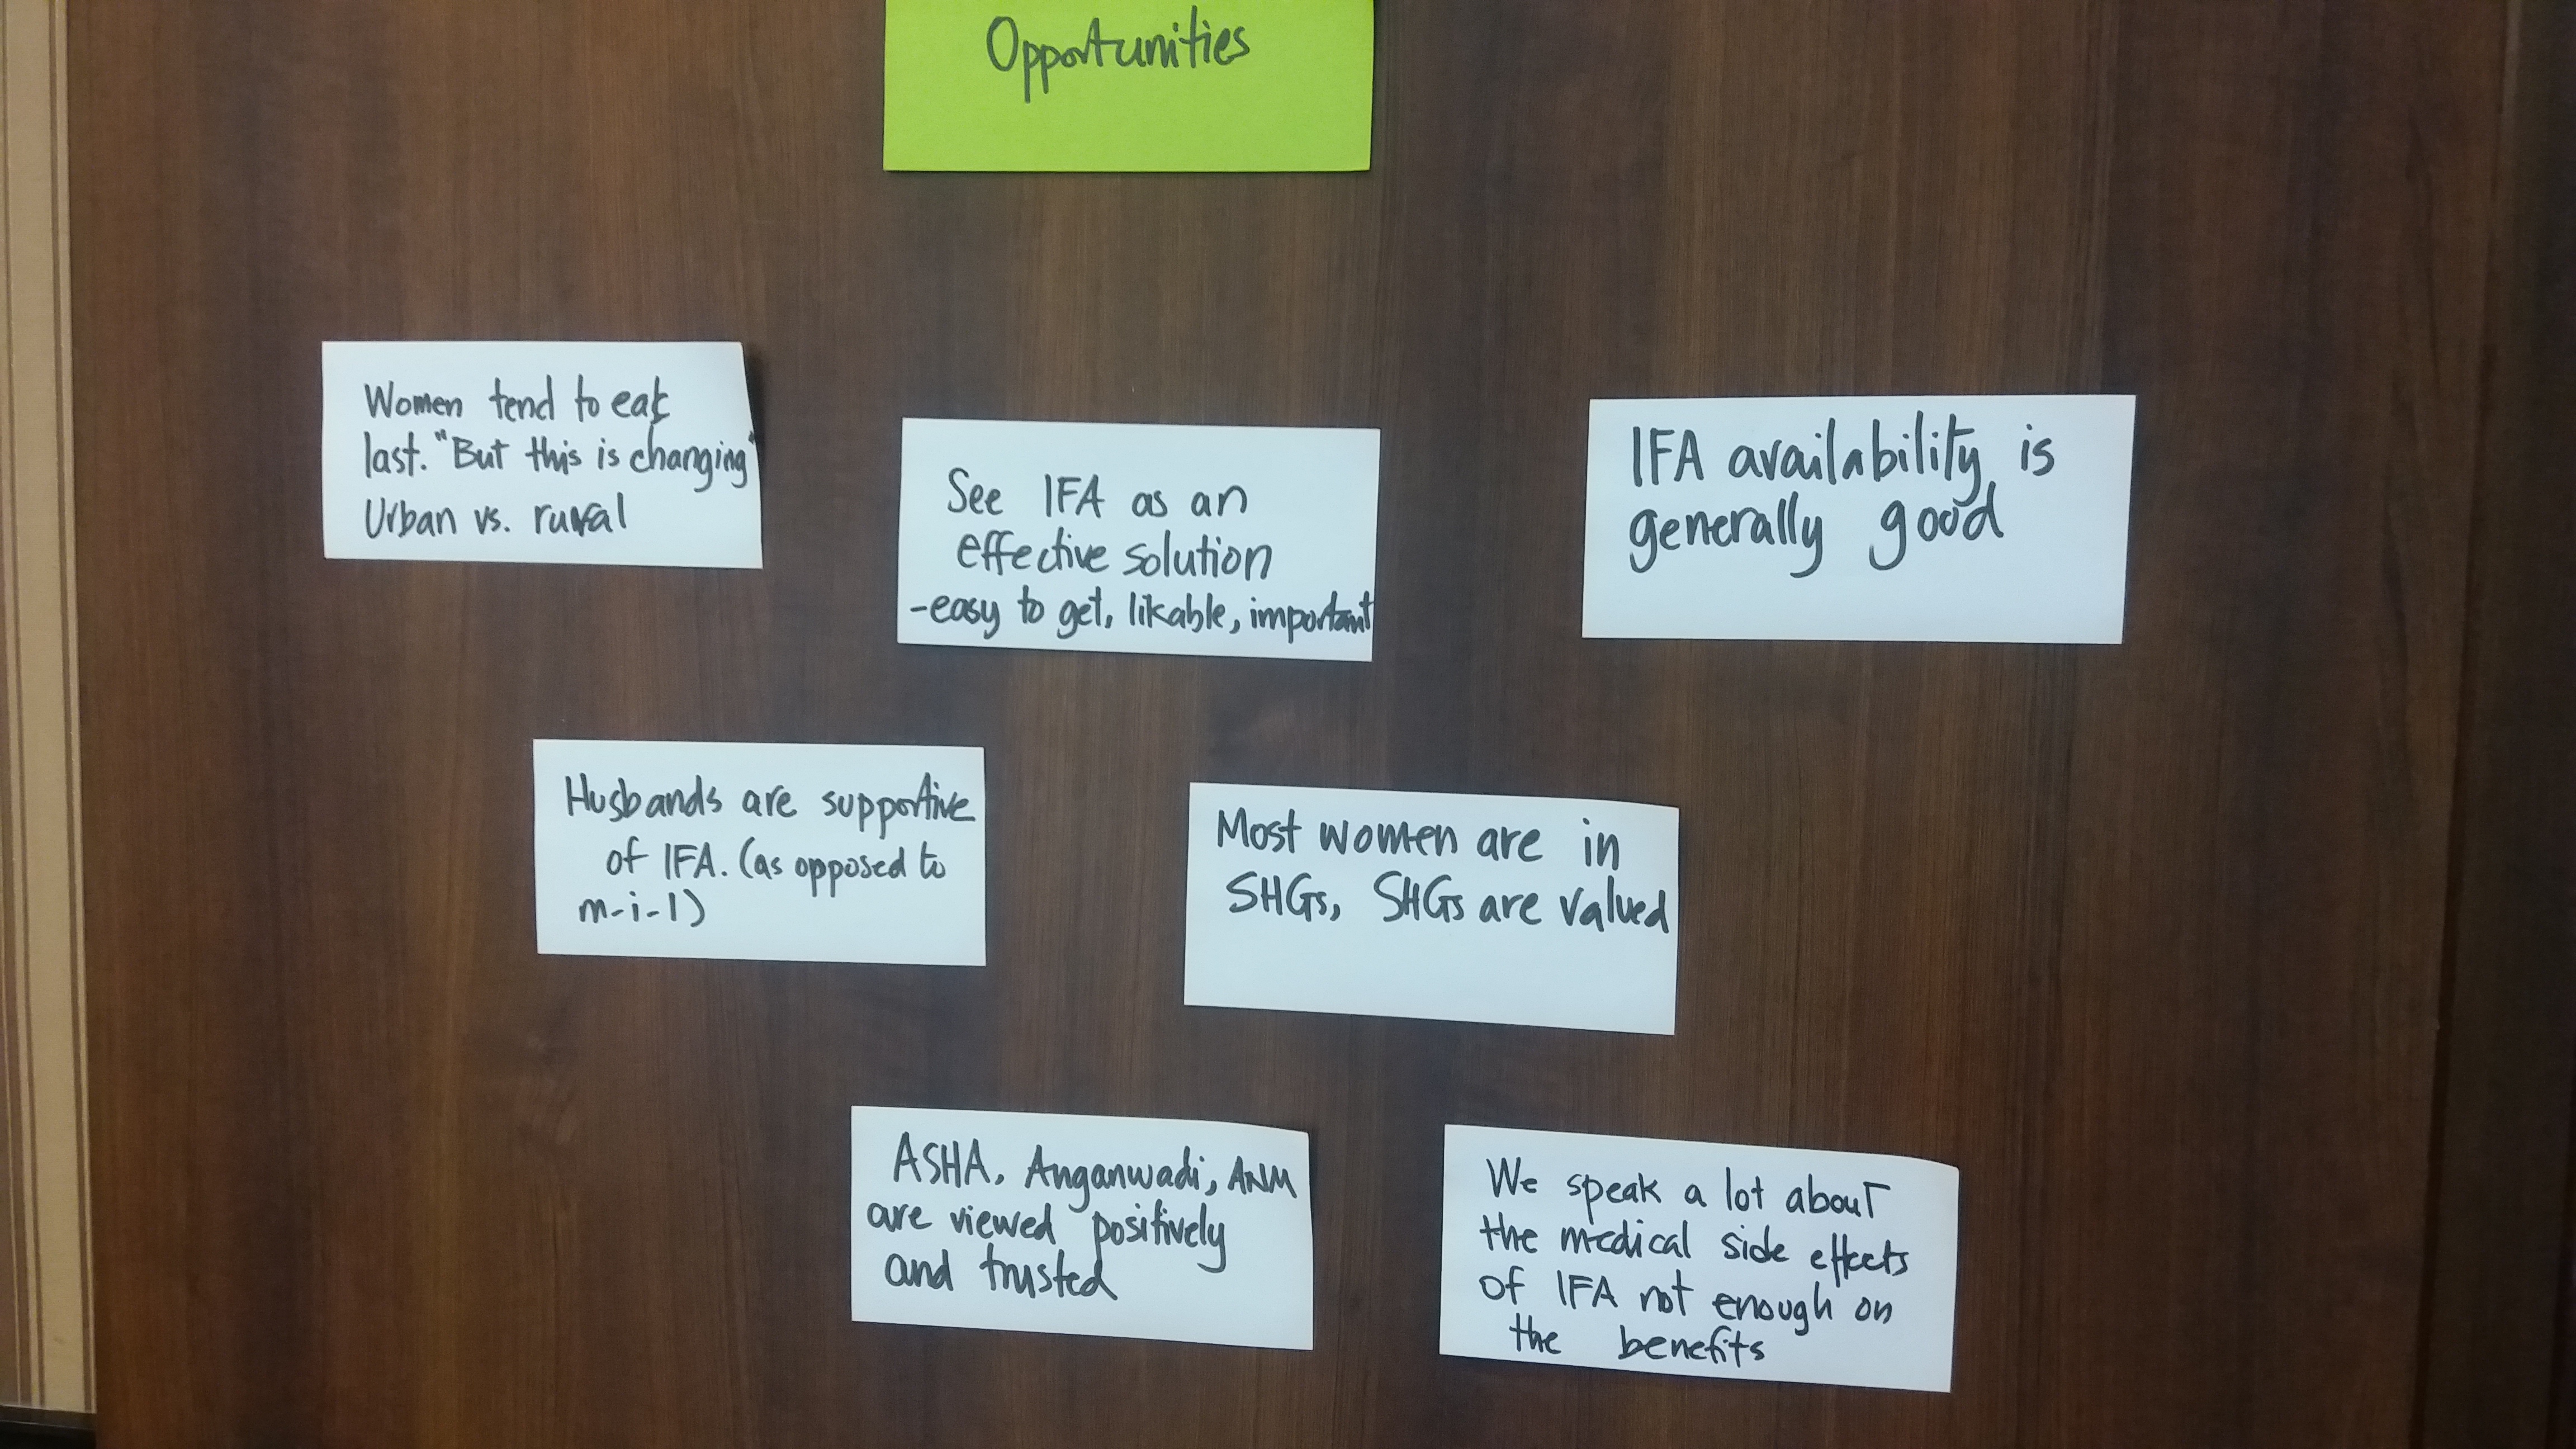 Opportunities
Women tend to eat
last. "But this is changing"
Urban vs. rural
See IFA as an
effective solution
-easy to get, likable, important
IFA availability is
generally good
Husbands are supportive
of IFA. (as opposed to
m-i-l)
Most women are in
SHGs, SHGs are valued
ASHA, Anganwadi, ANM
are viewed positively
and trusted
We speak a lot about
the medical side effects
of IFA not enough on
the benefits